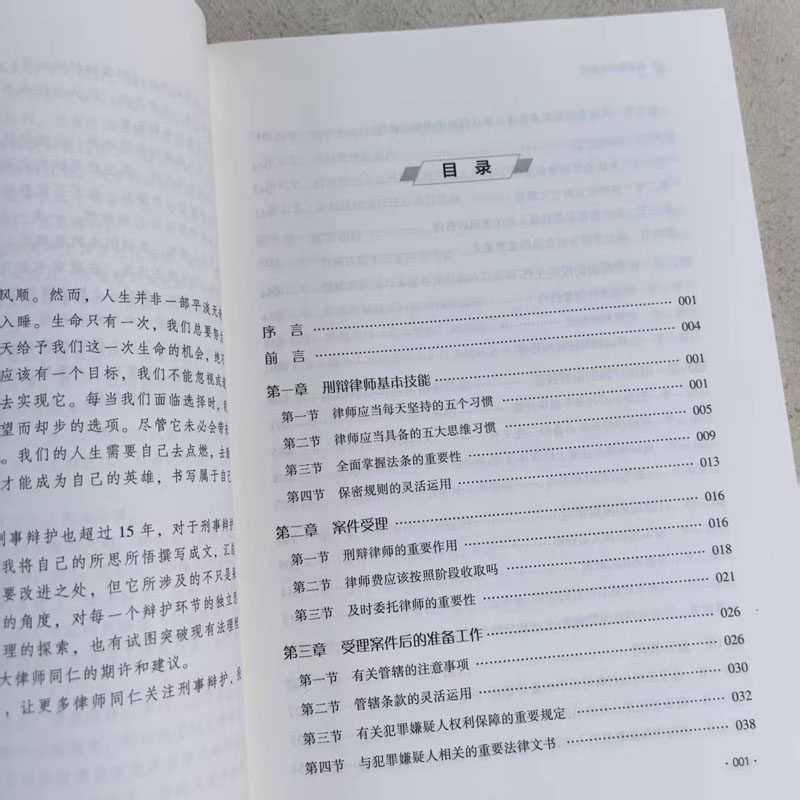 风顺。然而，人生并非一部平淡无
入睡。生命只有一次，我们总要努
天给予我们这一次生命的机会，绝不
应该有一个目标，我们不能忽视或
去实现它。每当我们面临选择时，
望而却步的选项。尽管它未必会带
。我们的人生需要自己去点燃，去
才能成为自己的英雄，书写属于自己
刑事辩护也超过 15 年，对于刑事辩护
我将自己的所思所悟撰写成文，汇
要改进之处，但它所涉及的不只是
的角度，对每一个辩护环节的独立思
理的探索，也有试图突破现有法理
大律师同仁的期许和建议。
，让更多律师同仁关注刑事辩护、
目 录
序 言 001
前 言 004
第一章 刑辩律师基本技能 001
第一节 律师应当每天坚持的五个习惯 001
第二节 律师应当具备的五大思维习惯 005
第三节 全面掌握法条的重要性 009
第四节 保密规则的灵活运用 013
第二章 案件受理 016
第一节 刑辩律师的重要作用 016
第二节 律师费应该按照阶段收取吗 018
第三节 及时委托律师的重要性 021
第三章 受理案件后的准备工作 026
第一节 有关管辖的注意事项 026
第二节 管辖条款的灵活运用 030
第三节 有关犯罪嫌疑人权利保障的重要规定 032
第四节 与犯罪嫌疑人相关的重要法律文书 038
· 001 ·